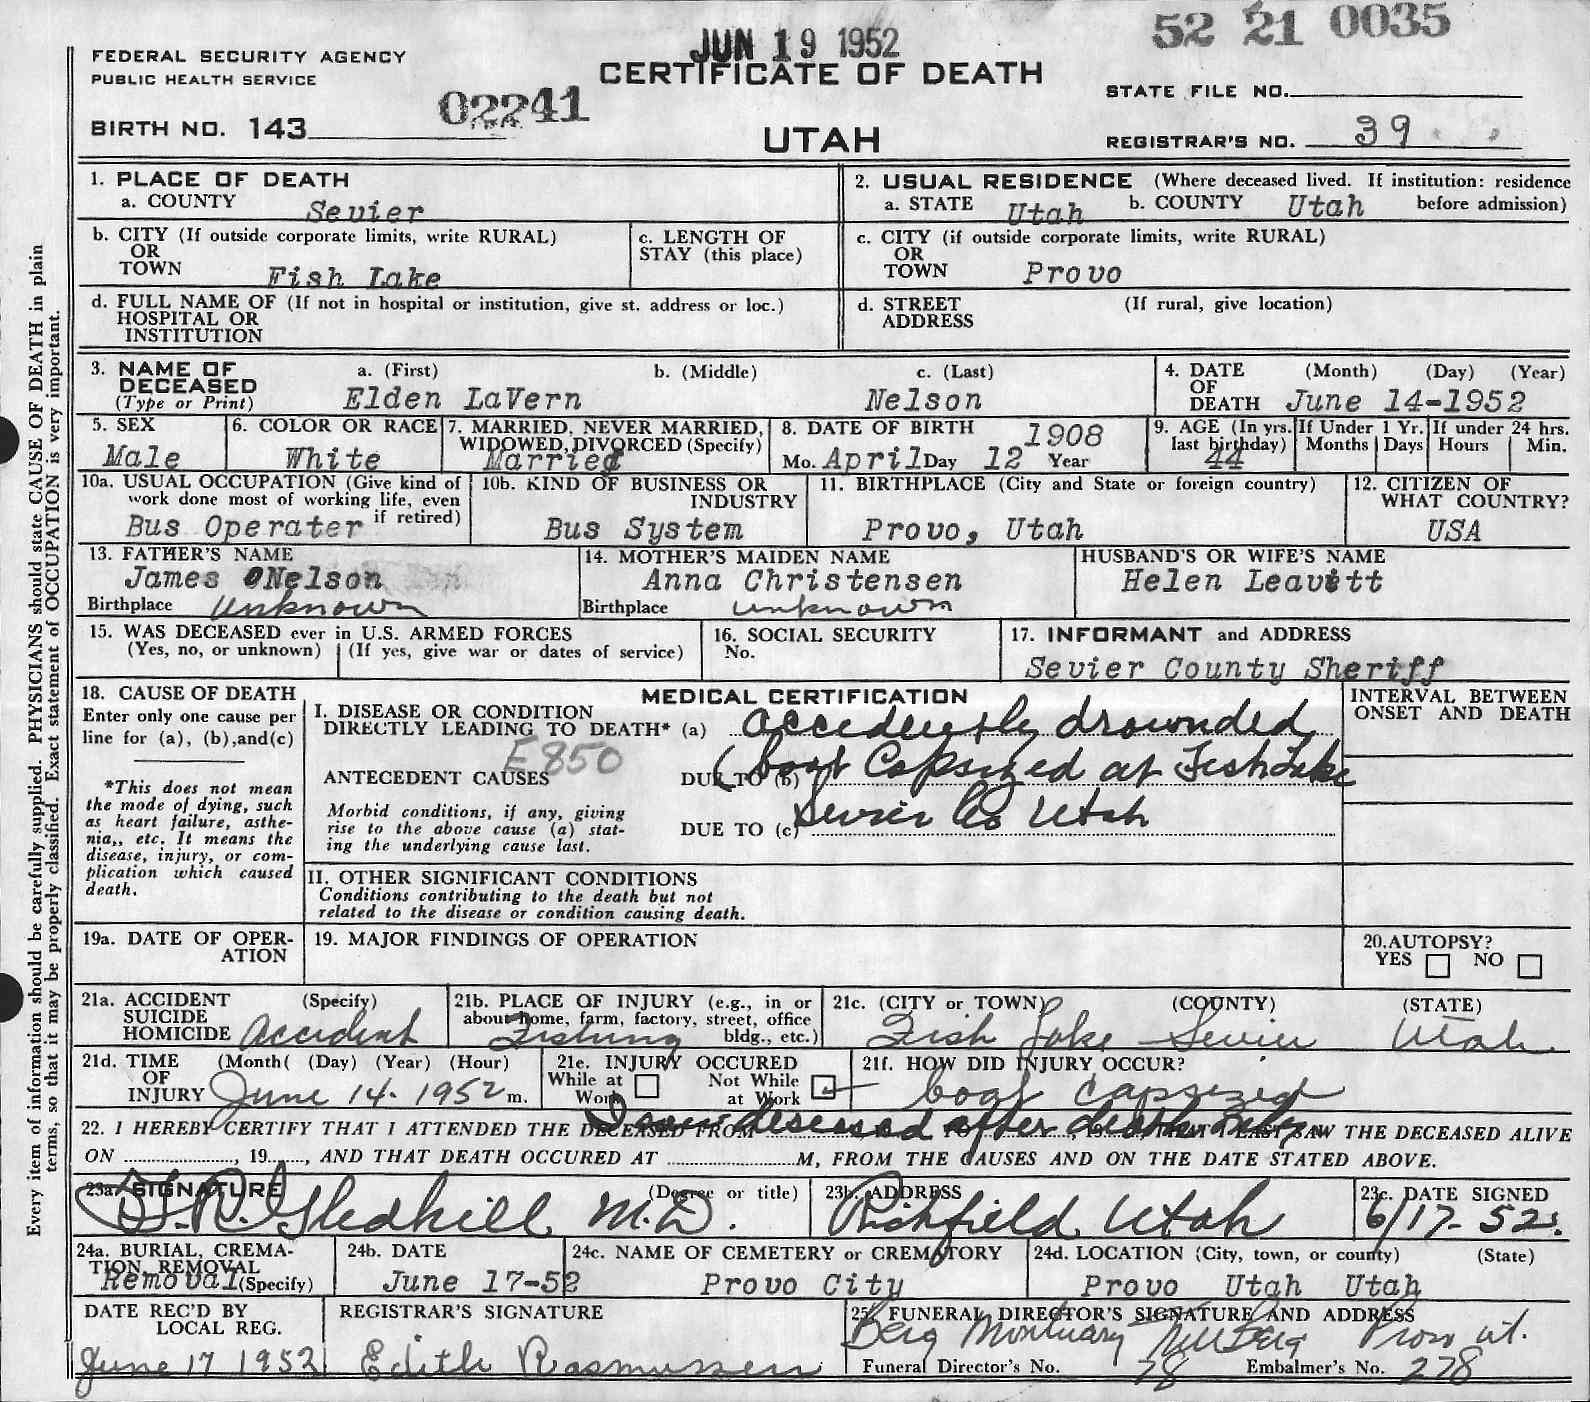 JUN 19 1952
52 21 0035
FEDERAL SECURITY AGENCY
PUBLIC HEALTH SERVICE
CERTIFICATE OF DEATH
STATE FILE NO.
BIRTH NO. 143
02241
UTAH
REGISTRAR'S NO. 39
Every item of information should be carefully supplied. PHYSICIANS should state CAUSE OF DEATH in plain
terms, so that it may be properly classified. Exact statement of OCCUPATION is very important.
1. PLACE OF DEATH
a. COUNTY Sevier
2. USUAL RESIDENCE (Where deceased lived. If institution: residence
a. STATE Utah b. COUNTY Utah before admission)
b. CITY (If outside corporate limits, write RURAL)
OR
TOWN Fish Lake
c. LENGTH OF
STAY (this place)
c. CITY (if outside corporate limits, write RURAL)
OR
TOWN Provo
d. FULL NAME OF (If not in hospital or institution, give st. address or loc.)
HOSPITAL OR
INSTITUTION
d. STREET (If rural, give location)
ADDRESS
3. NAME OF a. (First) b. (Middle) c. (Last)
DECEASED
(Type or Print) Elden LaVern Nelson
4. DATE (Month) (Day) (Year)
OF
DEATH June 14-1952
5. SEX
Male
6. COLOR OR RACE
White
7. MARRIED, NEVER MARRIED,
WIDOWED, DIVORCED (Specify)
Married
8. DATE OF BIRTH 1908
Mo. April Day 12 Year
9. AGE (In yrs.
last birthday)
44
If Under 1 Yr.
Months Days
If under 24 hrs.
Hours Min.
10a. USUAL OCCUPATION (Give kind of
work done most of working life, even
if retired)
Bus Operater
10b. KIND OF BUSINESS OR
INDUSTRY
Bus System
11. BIRTHPLACE (City and State or foreign country)
Provo, Utah
12. CITIZEN OF
WHAT COUNTRY?
USA
13. FATHER'S NAME
James O Nelson
Birthplace unknown
14. MOTHER'S MAIDEN NAME
Anna Christensen
Birthplace unknown
HUSBAND'S OR WIFE'S NAME
Helen Leavitt
15. WAS DECEASED ever in U.S. ARMED FORCES
(Yes, no, or unknown) (If yes, give war or dates of service)
16. SOCIAL SECURITY
No.
17. INFORMANT and ADDRESS
Sevier County Sheriff
18. CAUSE OF DEATH
Enter only one cause per
line for (a), (b),and(c)
*This does not mean
the mode of dying, such
as heart failure, asthe-
nia,, etc. It means the
disease, injury, or com-
plication which caused
death.
MEDICAL CERTIFICATION
I. DISEASE OR CONDITION
DIRECTLY LEADING TO DEATH* (a) accidently drownded
E850
ANTECEDENT CAUSES DUE TO (b) (boat Capsized at Fish Lake
Morbid conditions, if any, giving
rise to the above cause (a) stat-
ing the underlying cause last.
DUE TO (c) Sevier Co Utah
INTERVAL BETWEEN
ONSET AND DEATH
II. OTHER SIGNIFICANT CONDITIONS
Conditions contributing to the death but not
related to the disease or condition causing death.
19a. DATE OF OPER-
ATION
19. MAJOR FINDINGS OF OPERATION
20. AUTOPSY?
YES NO
21a. ACCIDENT (Specify)
SUICIDE
HOMICIDE Accident
21b. PLACE OF INJURY (e.g., in or
about home, farm, factory, street, office
bldg., etc.)
Fishing
21c. (CITY or TOWN) (COUNTY) (STATE)
Fish Lake Sevier Utah
21d. TIME (Month( (Day) (Year) (Hour)
OF
INJURY June 14. 1952 m.
21e. INJURY OCCURED
While at Not While
Work at Work
21f. HOW DID INJURY OCCUR?
boat capsized
I saw deseased after death only
22. I HEREBY CERTIFY THAT I ATTENDED THE DECEASED FROM TO , 19 THAT I LAST SAW THE DECEASED ALIVE
ON , 19 , AND THAT DEATH OCCURED AT M, FROM THE CAUSES AND ON THE DATE STATED ABOVE.
23a. SIGNATURE (Degree or title)
T.R. Gledhill M.D.
23b. ADDRESS
Richfield Utah
23c. DATE SIGNED
6/17-52.
24a. BURIAL, CREMA-
TION, REMOVAL
Removal (Specify)
24b. DATE
June 17-52
24c. NAME OF CEMETERY or CREMATORY
Provo City
24d. LOCATION (City, town, or county) (State)
Provo Utah Utah
DATE REC'D BY
LOCAL REG.
June 17 1952
REGISTRAR'S SIGNATURE
Edith Rasmussen
25. FUNERAL DIRECTOR'S SIGNATURE AND ADDRESS
Berg Mortuary Berg Provo ut.
Funeral Director's No. 78 Embalmer's No. 278